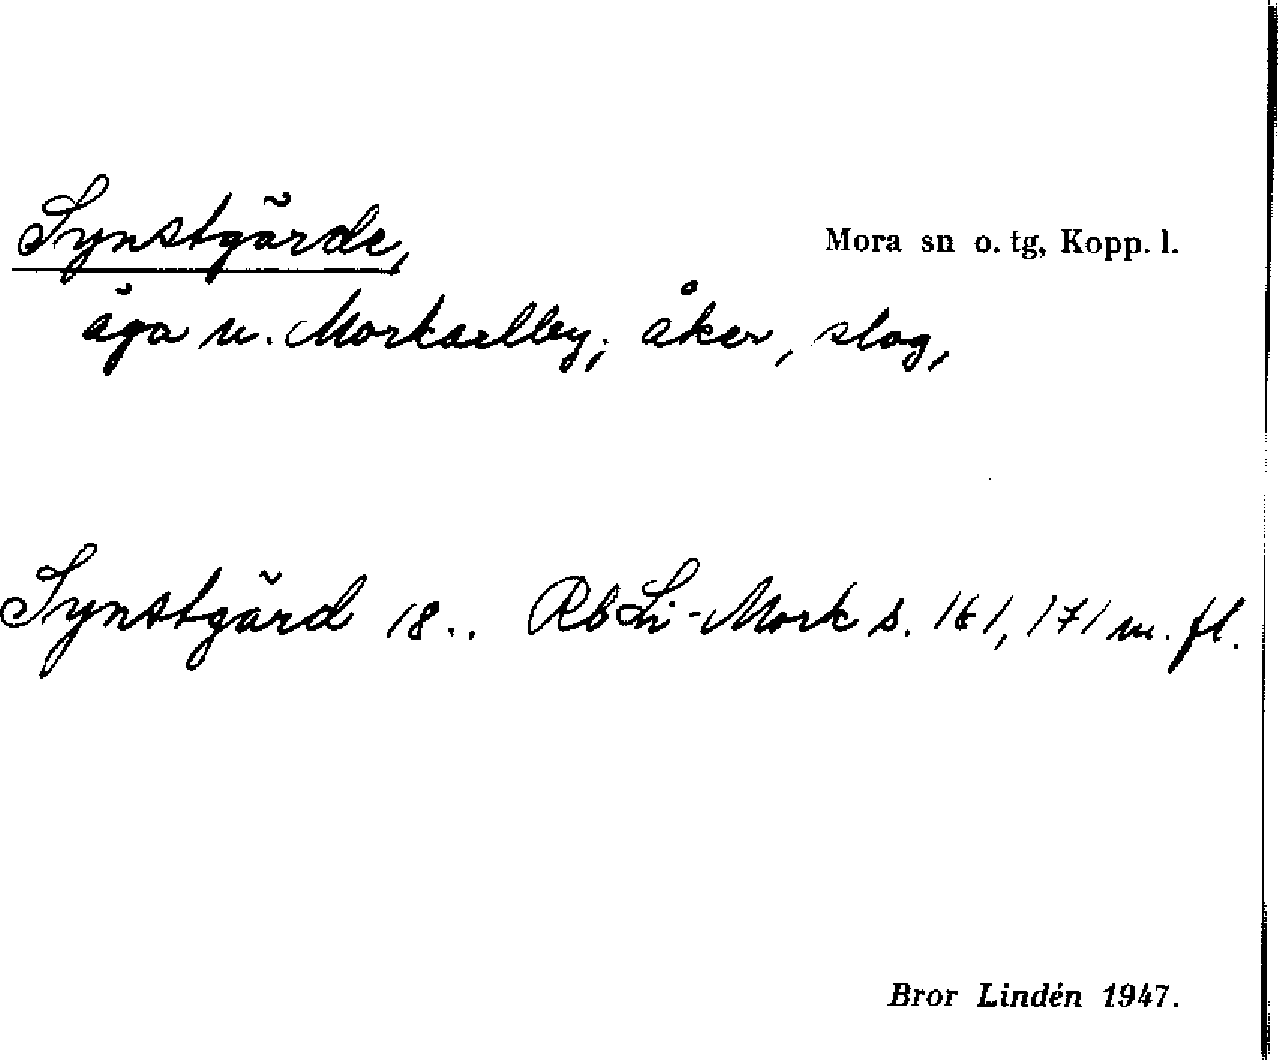 Synstgärde, Mora sn o. tg, Kopp. l.
äga u. Morkarlby; åker, slog,
Synstgärd 18.. Rb Li-Mork s. 161, 171 m. fl.
Bror Lindén 1947.